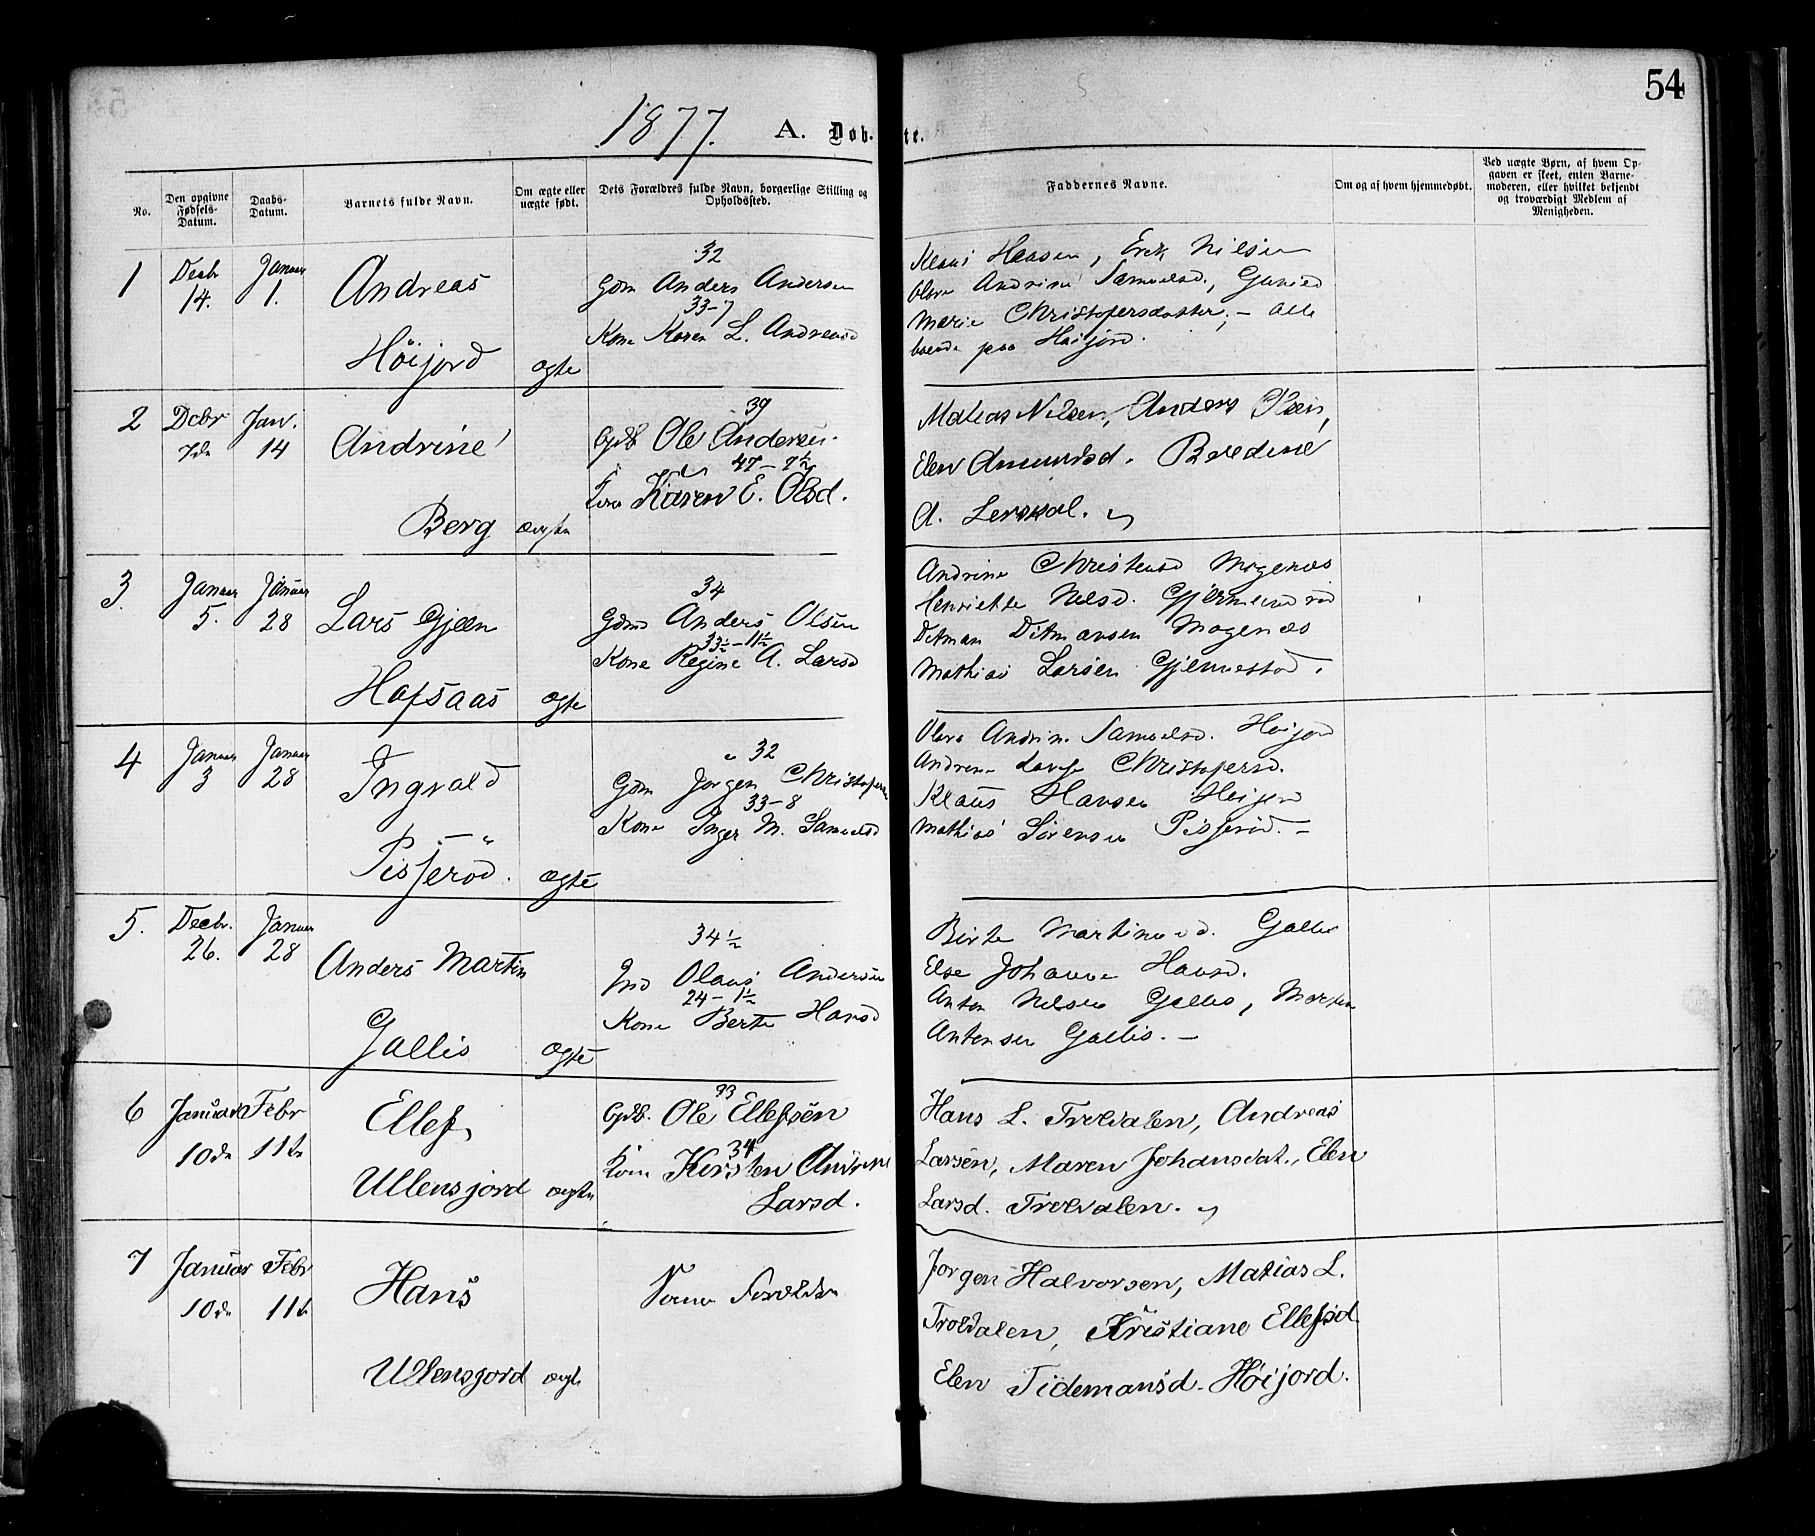 54
1877. A. Døb- te.
No.
Den opgivne Fødsels-Datum.
Daabs-Datum.
Barnets fulde Navn.
Om ægte eller uægte født.
Dets Forældres fulde Navn, borgerlige Stilling og Opholdssted.
Faddernes Navne.
Om og af hvem hjemmedøbt.
Ved uægte Børn, af hvem Opgaven er skeet, enten Barnemoderen, eller hvilket bekjendt og troværdigt Medlem af Menigheden.
1 Decbr 14. Januar 1. Andreas
Høijord ægte
32
Gdm Anders Andersen
33-7
Kone Karen L. Andreasd
Klaus Hansen, Erik Nilsen
Andrine Samuelsd.,
Marie Christofersdatter, - alle
boende paa Høijord.
2 Debr 7de Jan. 14 Andrine
Berg ægte
39
Gdb Ole Andersen.
47-7½
Kone Karen E. Olsd.
Matias Nilsen, Anders Olsen,
Elen Amundsd. Bredine
A. Lerskal.
3. Januar 5. Januar 28 Lars Gjeen
Hafsaas ægte
34
Gdm Anders Olsen
33½-11½
Kone Regine A. Larsd
Andrine Christensd Mogenæs
Henriette Nilsd. Gjermundrød
Ditman Ditmansen Mogenæs
Mathias Larsen Gjennestad.
4 Januar 3 Januar 28 Ingvald
Pisserød. ægte
32
Gdm Jørgen Christofersen
33-8
Kone Inger M. Samuelsd
Andrine Samuelsd. Høijord
Andrine Christofersd.
Klaus Hansen Høijord
Mathias Sørensen Pisserød. -
5. Decbr. 26. Januar 28 Anders Martin
Gallis ægte
34½
Ind Olaus Andersen
24-1½
Kone Berte Hansd
Birte Martinusd. Gallis
Else Johanne Hansd.
Anton Nilsen Gallis, Martin
Antonsen Gallis. -
6 Januar 10de Febr 11te Ellef,
Ullensjord ægte
33
Gdb. Ole Ellefsen
34
Kone Kirsten Andrine
Larsd.
Hans L. Troldalen, Andreas
Larsen, Maren Johansdat., Elen
Larsd. Troldalen.
7 Januar 10de Febr 11te Hans
Ullensjord ægte
Samme Forældre
Jørgen Halvorsen, Matias L.
Troldalen, Kristiane Ellefsd.
Elen Tidemansd. Høijord.